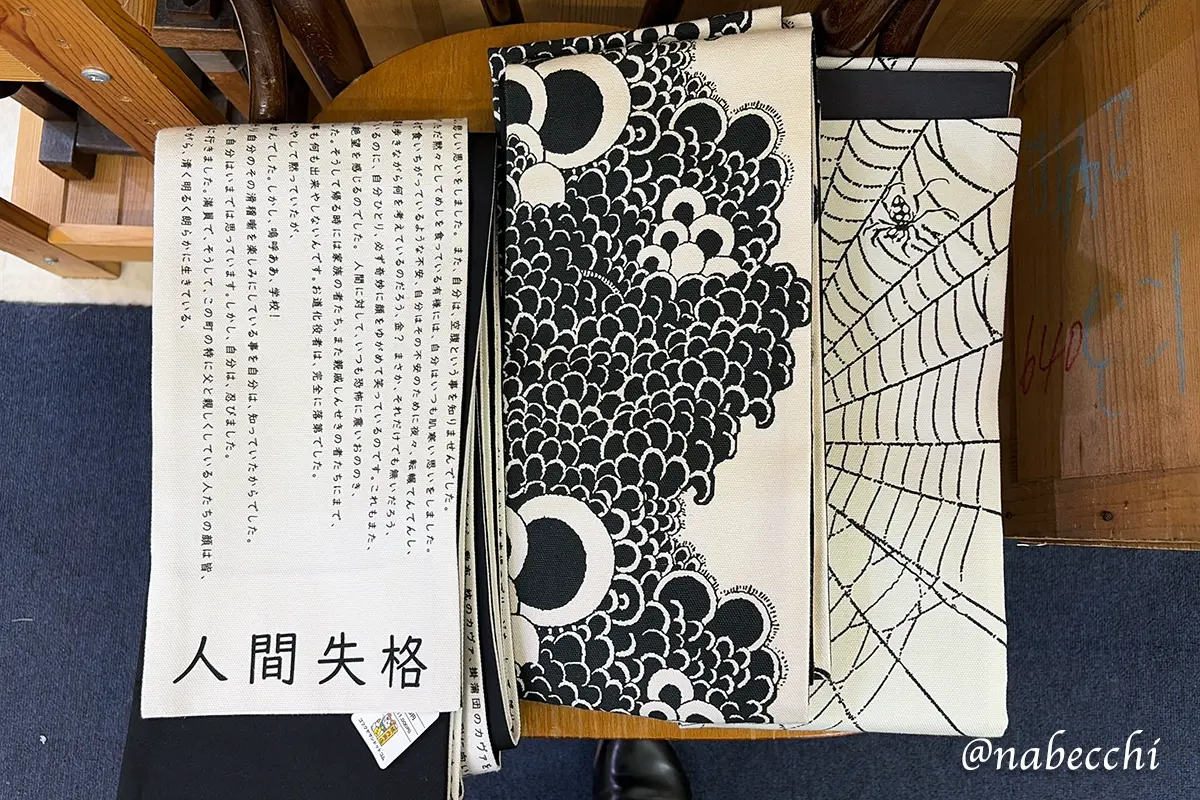 しい思いをしました。また、自分は、空腹という事を知りませんでした。
だ黙々としてめしを食っている有様には、自分はいつも肌寒い思いをしました。
食いちがっているような不安、自分はその不安のために夜々、転輾てんてんし、
歩きながら何を考えているのだろう、金? まさか、それだけでも無いだろう、
るのに、自分ひとり、必ず奇妙に顔をゆがめて笑っているのです。これもまた、
絶望を感じるのでした。人間に対して、いつも恐怖に震いおののき、
た。そうして帰る時には家族の者たち、また親戚しんせきの者たちにまで、
も何も出来やしないんです。お道化役者は、完全に落第でした。
やして黙っていたが、
んでした。しかし、嗚呼ああ、学校!
自分のその滑稽噺を楽しみにしている事を自分は、知っていたからでした。
、自分はいまでは思っています。しかし、自分は、忍びました。
に行きました。満員で、そうして、この町の特に父と親しくしている人たちの顔は皆、
がら、清く明るく朗らかに生きている、
人間失格
枕のカヴァ、掛蒲団のカヴァを
640
@nabecchi